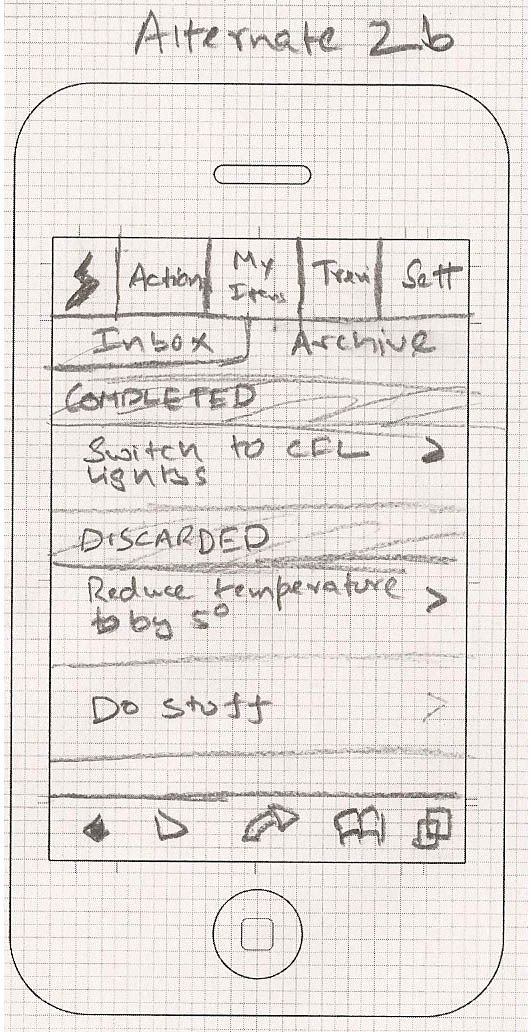 Alternate 2b
Action
My
Items
Tren
Sett
Inbox
Archive
COMPLETED
Switch to CFL
Lights
DISCARDED
Reduce temperature
by 5°
Do stuff